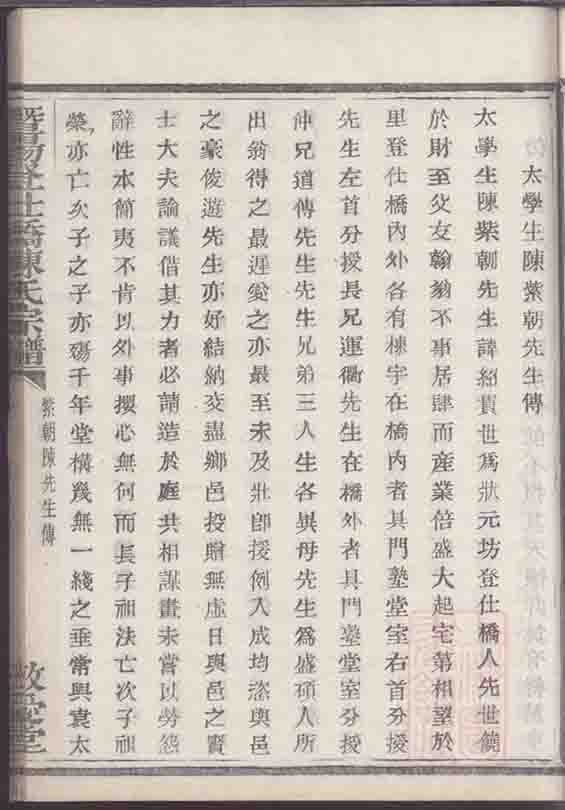 太學生陳紫朝先生傳
太學生陳紫朝先生諱紹貫世爲狀元坊登仕橋人先世饒
於財至父友翰翁不事居肆而産業倍盛大起宅第相望於
里登仕橋內外各有棟宇在橋內者具門塾堂室右首分授
先生左首分授長兄運衢先生在橋外者具門臺堂室分授
仲兄道傳先生先生兄弟三人生各異母先生爲盛碩人所
出翁得之最遲愛之亦最至未及壯卽援例入成均洊與邑
之豪俊遊先生亦好結納交盡鄉邑投贈無虛日與邑之賢
士大夫論議借其力者必請造於庭共相謀畫未嘗以勞怨
辭性本簡夷不肯以外事攖心無何而長子祖法亡次子祖
榮亦亡次子之子亦殤千年堂構幾無一綫之垂常與袁太
暨陽登仕橋陳氏宗譜
紫朝陳先生傳
敬愛堂